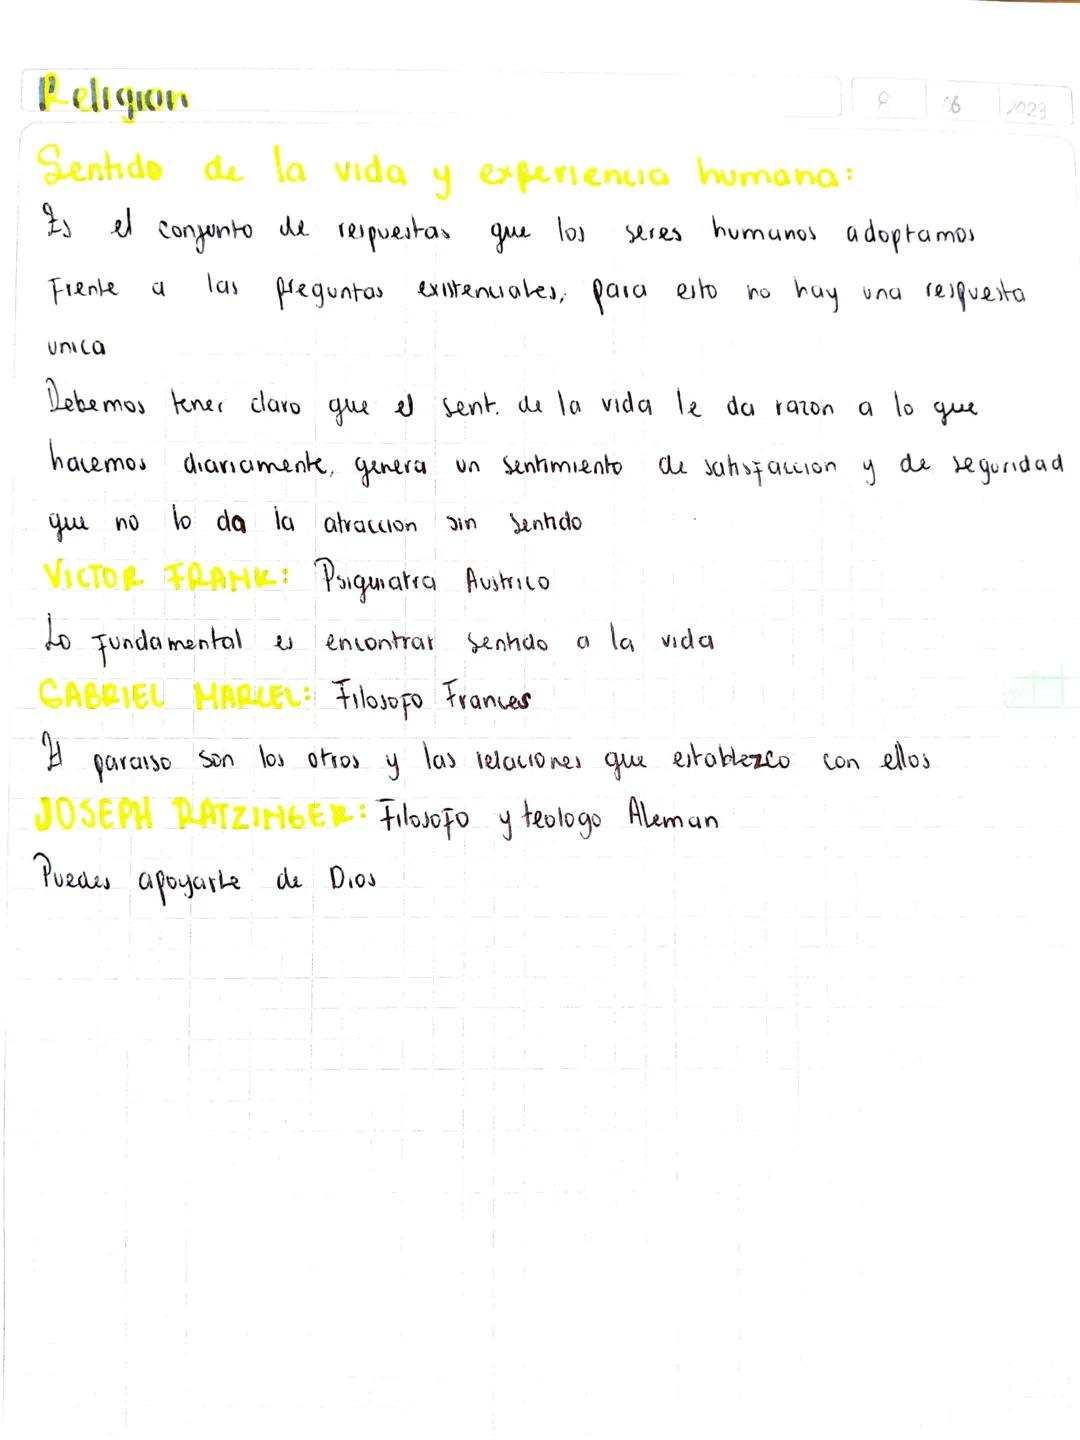 Religion 06 2023
Sentido de la vida y experiencia humana:
Es el conjunto de respuestas que los seres humanos adoptamos
Frente a las preguntas existenciales, para esto no hay una respuesta
unica
Debemos tener claro que el sent. de la vida le da razon a lo que
hacemos diariamente, genera un sentimiento de satisfaccion y de seguridad
que no lo da la atraccion sin sentido
VICTOR FRANK: Psiquiatra Austrico
Lo fundamental es encontrar sentido a la vida
GABRIEL MARCEL: Filosofo Frances
El paraiso son los otros y las relaciones que establezco con ellos
JOSEPH RATZINGER: Filosofo y teologo Aleman
Puedes apoyarte de Dios